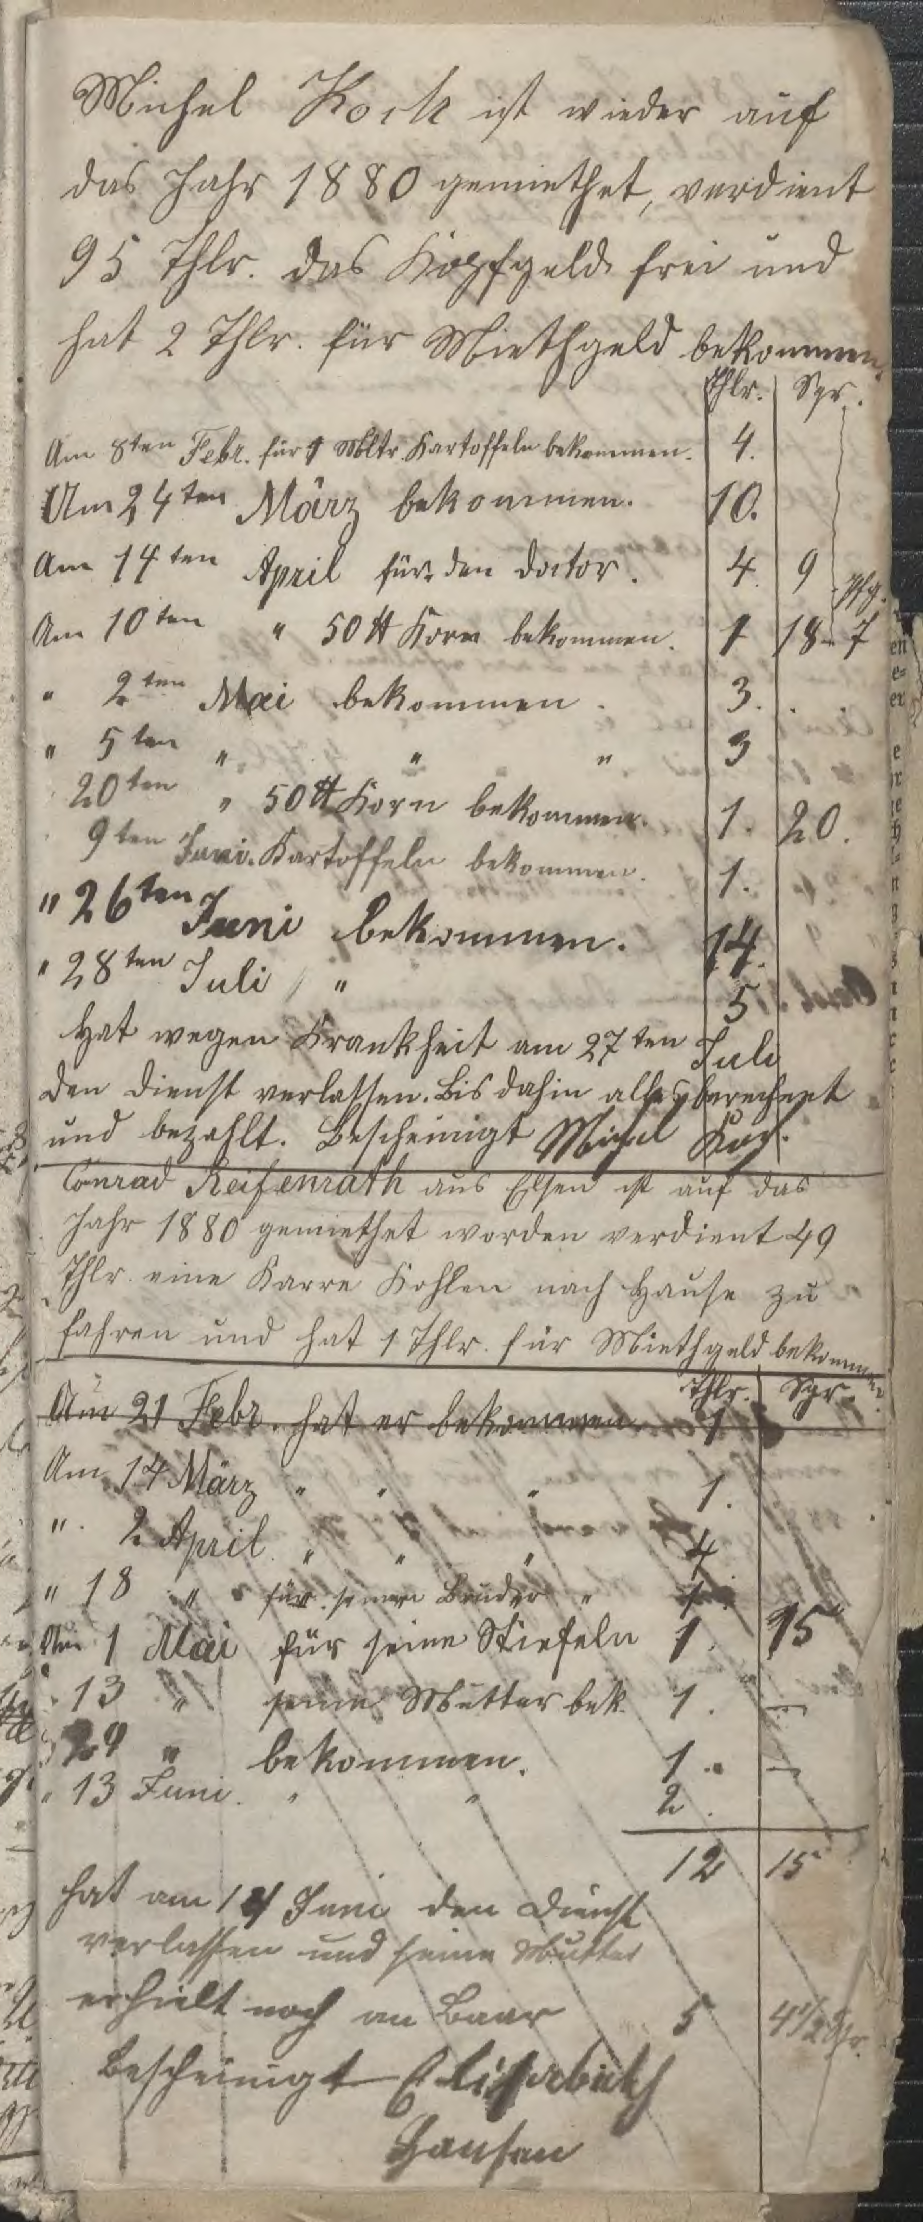 Michel Kock ist wieder auf
das Jahr 1880 gemiethet, verdient
95 Thlr. das Kopfgeld frei und
hat 2 Thlr. für Miethgeld bekommen.
Thlr. Sgr.
Am 8ten Febr. für 1 Mltr. Kartoffeln bekommen. 4.
Am 24ten März bekommen. 10.
Am 14ten April für den Doctor. 4. 9 Pfg.
Am 10ten " 50 ℔ Korn bekommen. 1 18 - 7
" 2ten Mai bekommen. 3.
" 5ten " " " 3
20ten " 50 ℔ Korn bekommen. 1. 20.
9ten Juni Kartoffeln bekommen. 1.
" 26ten Juni bekommen. 14.
" 28ten Juli " 5
Hat wegen Krankheit am 27ten Juli
den Dienst verlassen. Bis dahin alles berechnet
und bezahlt. Bescheinigt Michel Koch.
Conrad Reifenrath aus Elsen ist auf das
Jahr 1880 gemiethet worden verdient 49
Thlr. eine Karre Kohlen nach Hause zu
fahren und hat 1 Thlr. für Miethgeld bekommen.
Thlr. Sgr.
Am 21 Febr. hat er bekommen 1
Am 14 März " " " 1.
" 2 April " " " 4
" 18 " für seinen Bruder " 1
Am 1 Mai für seine Stiefeln 1. 15
" 13 " seine Mutter bek. 1. —
29 " bekommen. 1. —
" 13 Juni. " " 2.
12 15
hat am 14 Juni den Dienst
verlassen und seine Mutter
erhielt noch an Baar 5 4 1/2 Sgr.
Bescheinigt Elisabeth
Hansen